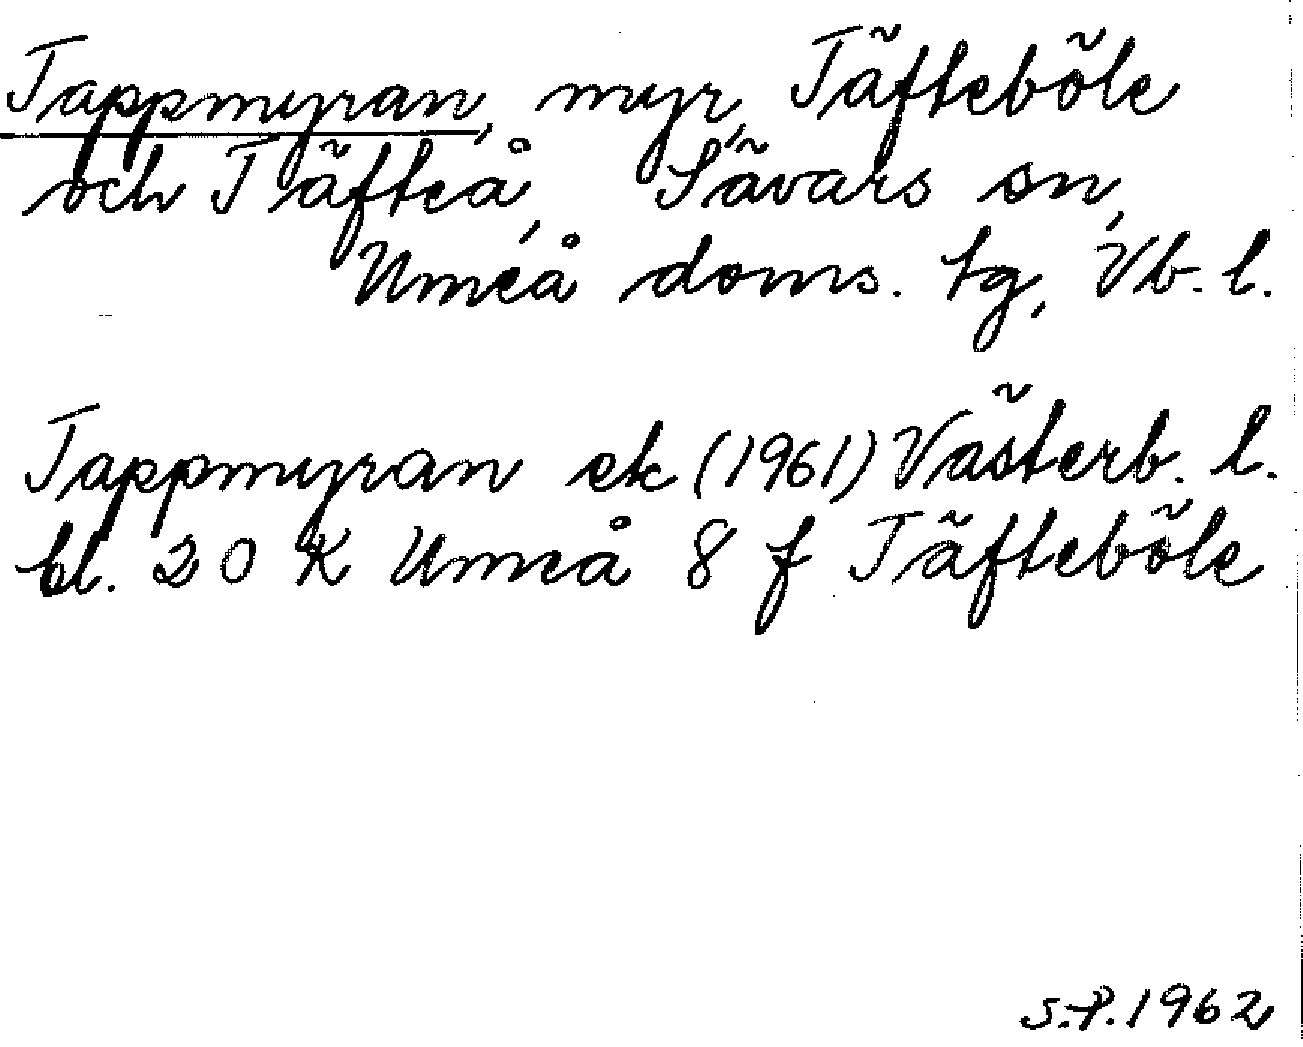 Tappmyran, myr, Täfteböle
och Täfteå, Sävars sn,
Umeå doms. tg, Vb. l.
Tappmyran ek (1961) Västerb. l.
bl. 20 K Umeå 8 f Täfteböle
S.P. 1962